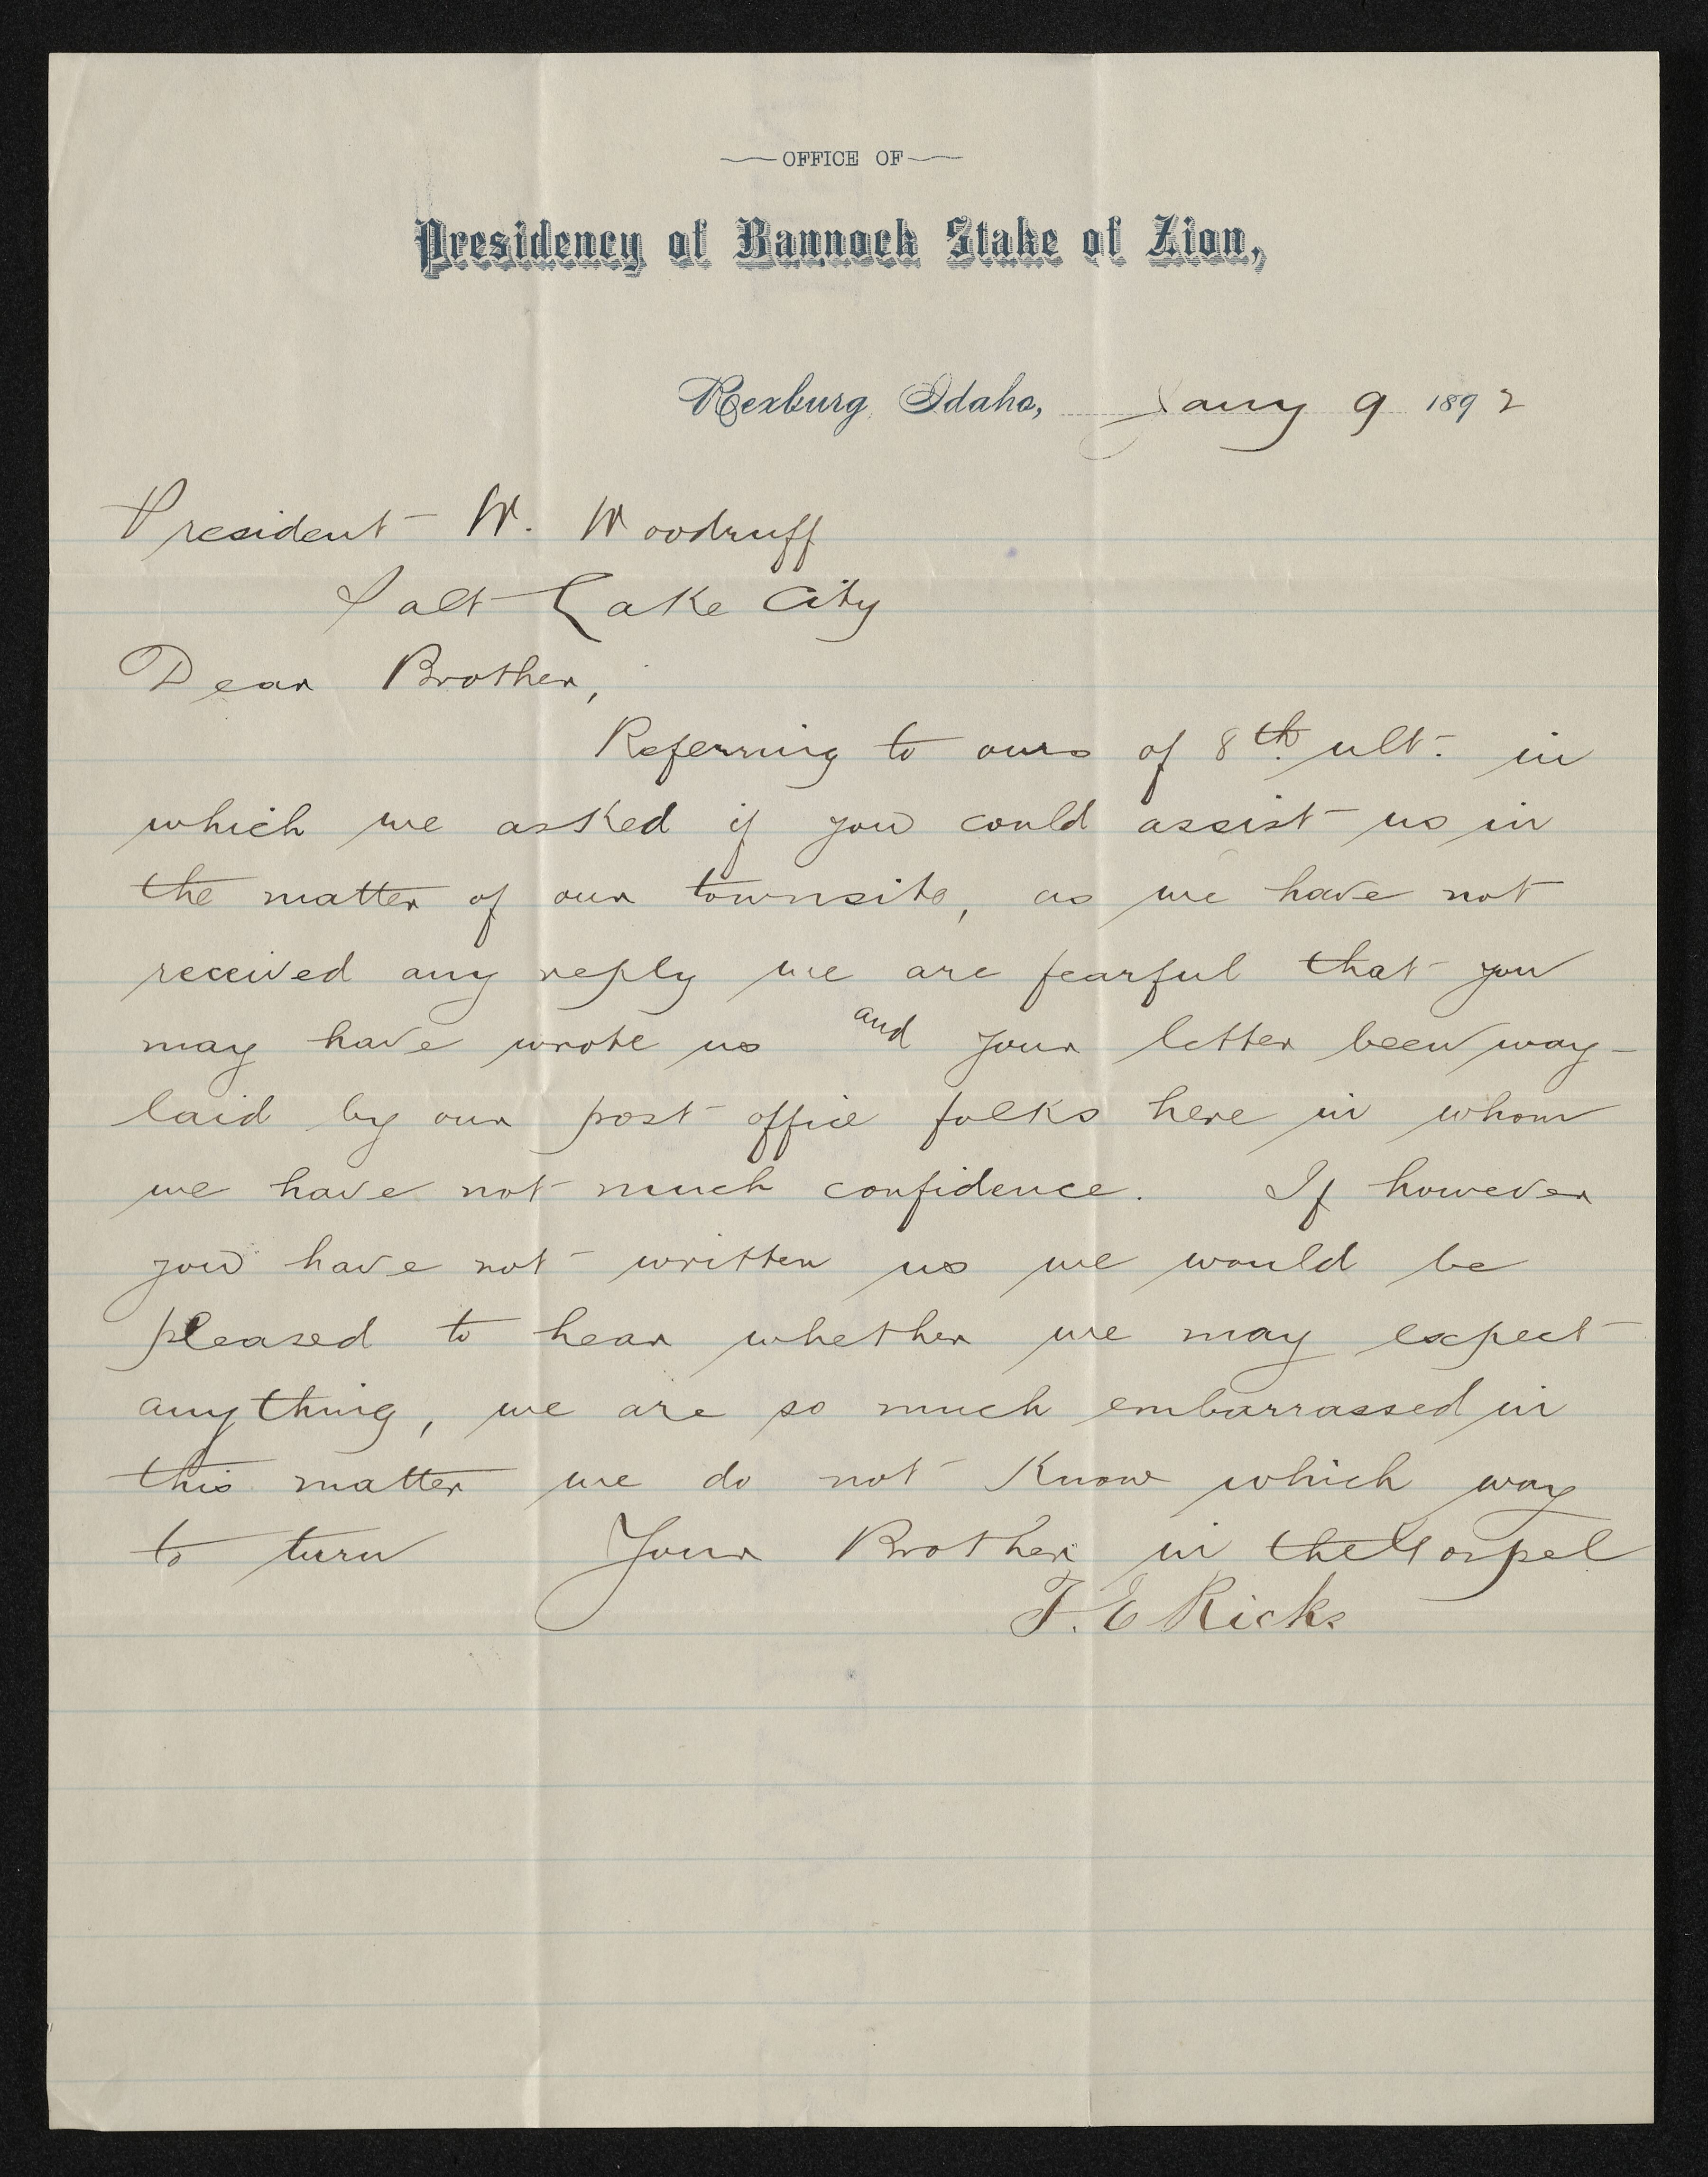 OFFICE OF
Presidency of Bannock Stake of Zion,
Rexburg, Idaho, Jany 9 1892
President W. Woodruff
Salt Lake City
Dear Brother,
Referring to ours of 8th. ult. in
which we asked if you could assist us in
the matter of our townsite, as we have not
received any reply we are fearful that you
may have wrote us and your letter been way-
laid by our post office folks here in whom
we have not much confidence. If however
you have not written us we would be
pleased to hear whether we may expect
anything, we are so much embarrassed in
this matter we do not know which way
to turn Your Brother in the Gospel
T. E Ricks